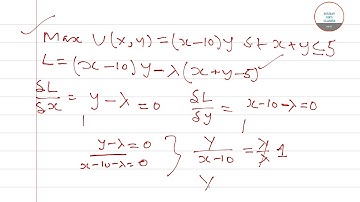 Max U(x,y)=(x-10)y st x+y≤5
L=(x-10)y-λ(x+y-5)
δL/δx = y-λ=0 δL/δy = x-10-λ=0
y-λ=0 / x-10-λ=0 } y/x-10 = λ/λ 1
y